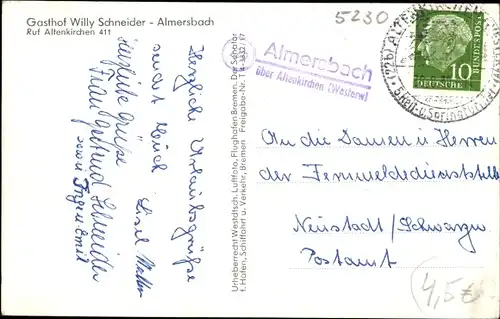 Gasthof Willy Schneider - Almersbach
Ruf Altenkirchen 411
5230
Almersbach
über Altenkirchen (Westerw)
ALTENKIRCHEN
(22b)
10
DEUTSCHE
BUNDESPOST
Herzliche Urlaubsgrüße
sendet Euch
Herzliche Grüße
Frau Gertrud Schneider
sowie
Urheberrecht Westdtsch. Luftfoto, Flughafen Bremen. Der Senator
f. Häfen, Schiffahrt u. Verkehr, Bremen
An die Damen und Herren
der Fernmeldedienststelle
Neustadt/Schwarzw.
Postamt
4,5